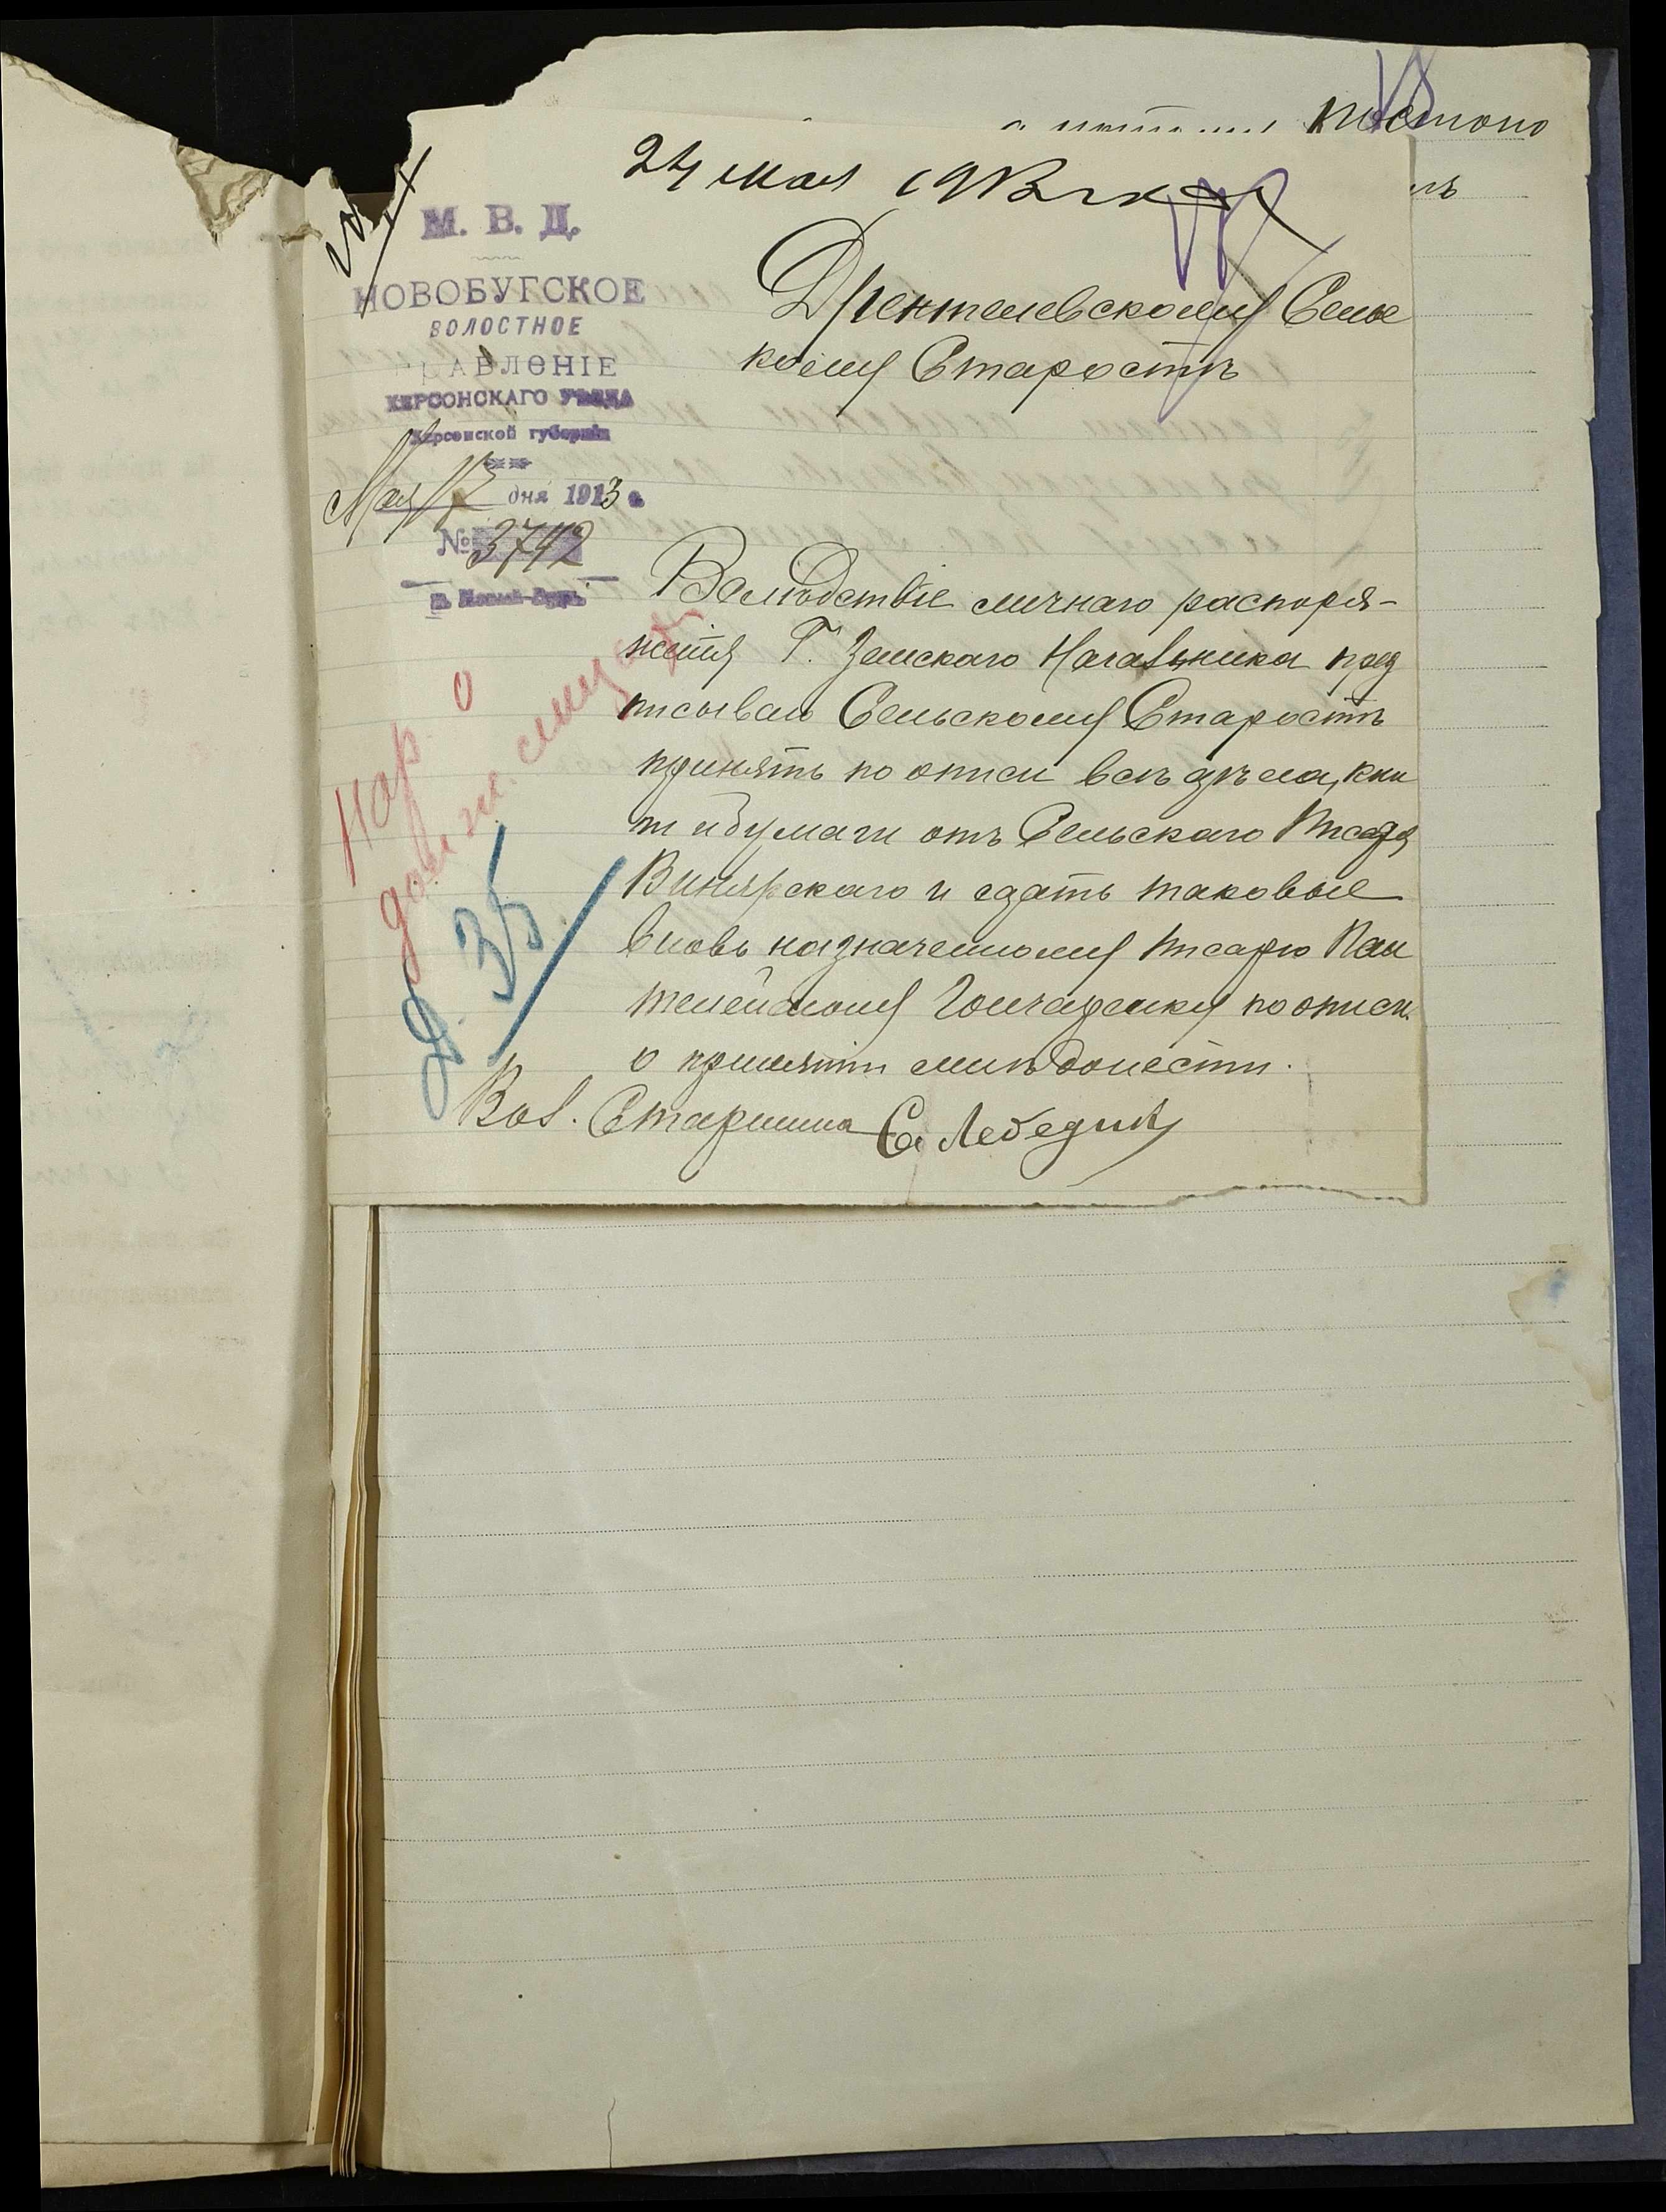 постано
24 мая 1913 г.
М. В. Д.
НОВОБУГСКОЕ
ВОЛОСТНОЕ
ПРАВЛЕНІЕ
ХЕРСОНСКАГО УѢЗДА
Херсонской губерніи
Мая 17 дня 1913 г.
№ 3742
Дрентелевскому Сельс
кому Старостѣ
Вслѣдствіе личнаго распоря-
женія Г. Земскаго Начальника пред
писываю Сельскому Старостѣ
принять по описи всѣ дѣла, кни
ги и бумаги отъ Сельскаго Писаря
Винярскаго и сдать таковые
вновь назначенному писарю Пан
телеймону Гончаренку по описи.
о принятіи мнѣ донести.
Вол. Старшина Са Лебедин
Нар о
должн. лицах
Д. 35